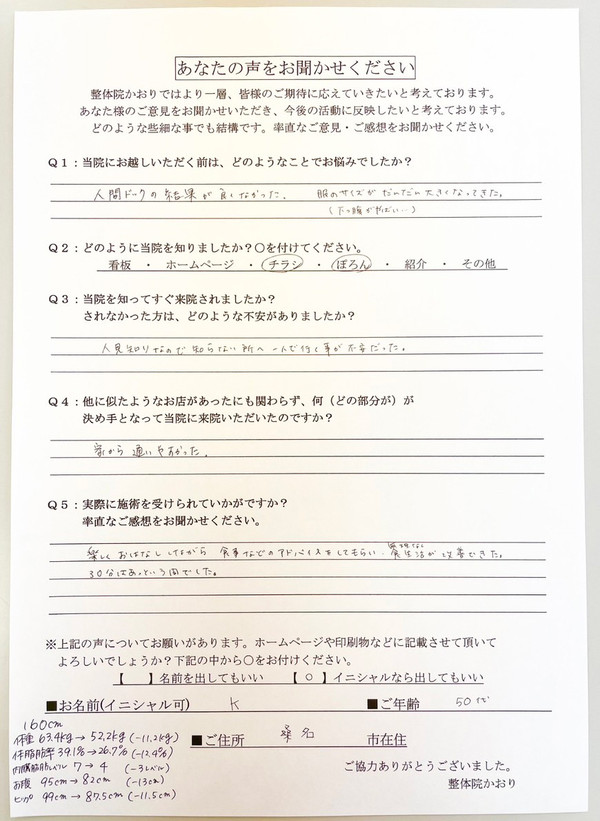 あなたの声をお聞かせください
整体院かおりではより一層、皆様のご期待に応えていきたいと考えております。
あなた様のご意見をお聞かせいただき、今後の活動に反映したいと考えております。
どのような些細な事でも結構です。率直なご意見・ご感想をお聞かせください。
Q1：当院にお越しいただく前は、どのようなことでお悩みでしたか？
人間ドックの結果が良くなかった。 服のサイズがだんだん大きくなってきた。
(下っ腹がやばい…)
Q2：どのように当院を知りましたか？〇を付けてください。
看板 ・ ホームページ ・ チラシ ・ ぽろん ・ 紹介 ・ その他
Q3：当院を知ってすぐ来院されましたか？
されなかった方は、どのような不安がありましたか？
人見知りなので知らない所へ一人で行く事が不安だった。
Q4：他に似たようなお店があったにも関わらず、何（どの部分が）が
決め手となって当院に来院いただいたのですか？
家から通いやすかった。
Q5：実際に施術を受けられていかがですか？
率直なご感想をお聞かせください。
無理なく
楽しくおはなししながら 食事などのアドバイスをしてもらい、食生活が改善できた。
30分はあっという間でした。
※上記の声についてお願いがあります。ホームページや印刷物などに記載させて頂いて
よろしいでしょうか？下記の中から〇をお付けください。
【　】名前を出してもいい 【 〇 】イニシャルなら出してもいい
■お名前(イニシャル可) K ■ご年齢 50代
■ご住所 桑名 市在住
160cm
体重 63.4kg→52.2kg (-11.2kg)
体脂肪率 39.1%→26.7% (-12.4%)
内臓脂肪レベル 7→4 (-3レベル)
お腹 95cm→82cm (-13cm)
ヒップ 99cm→87.5cm (-11.5cm)
ご協力ありがとうございました。
整体院かおり